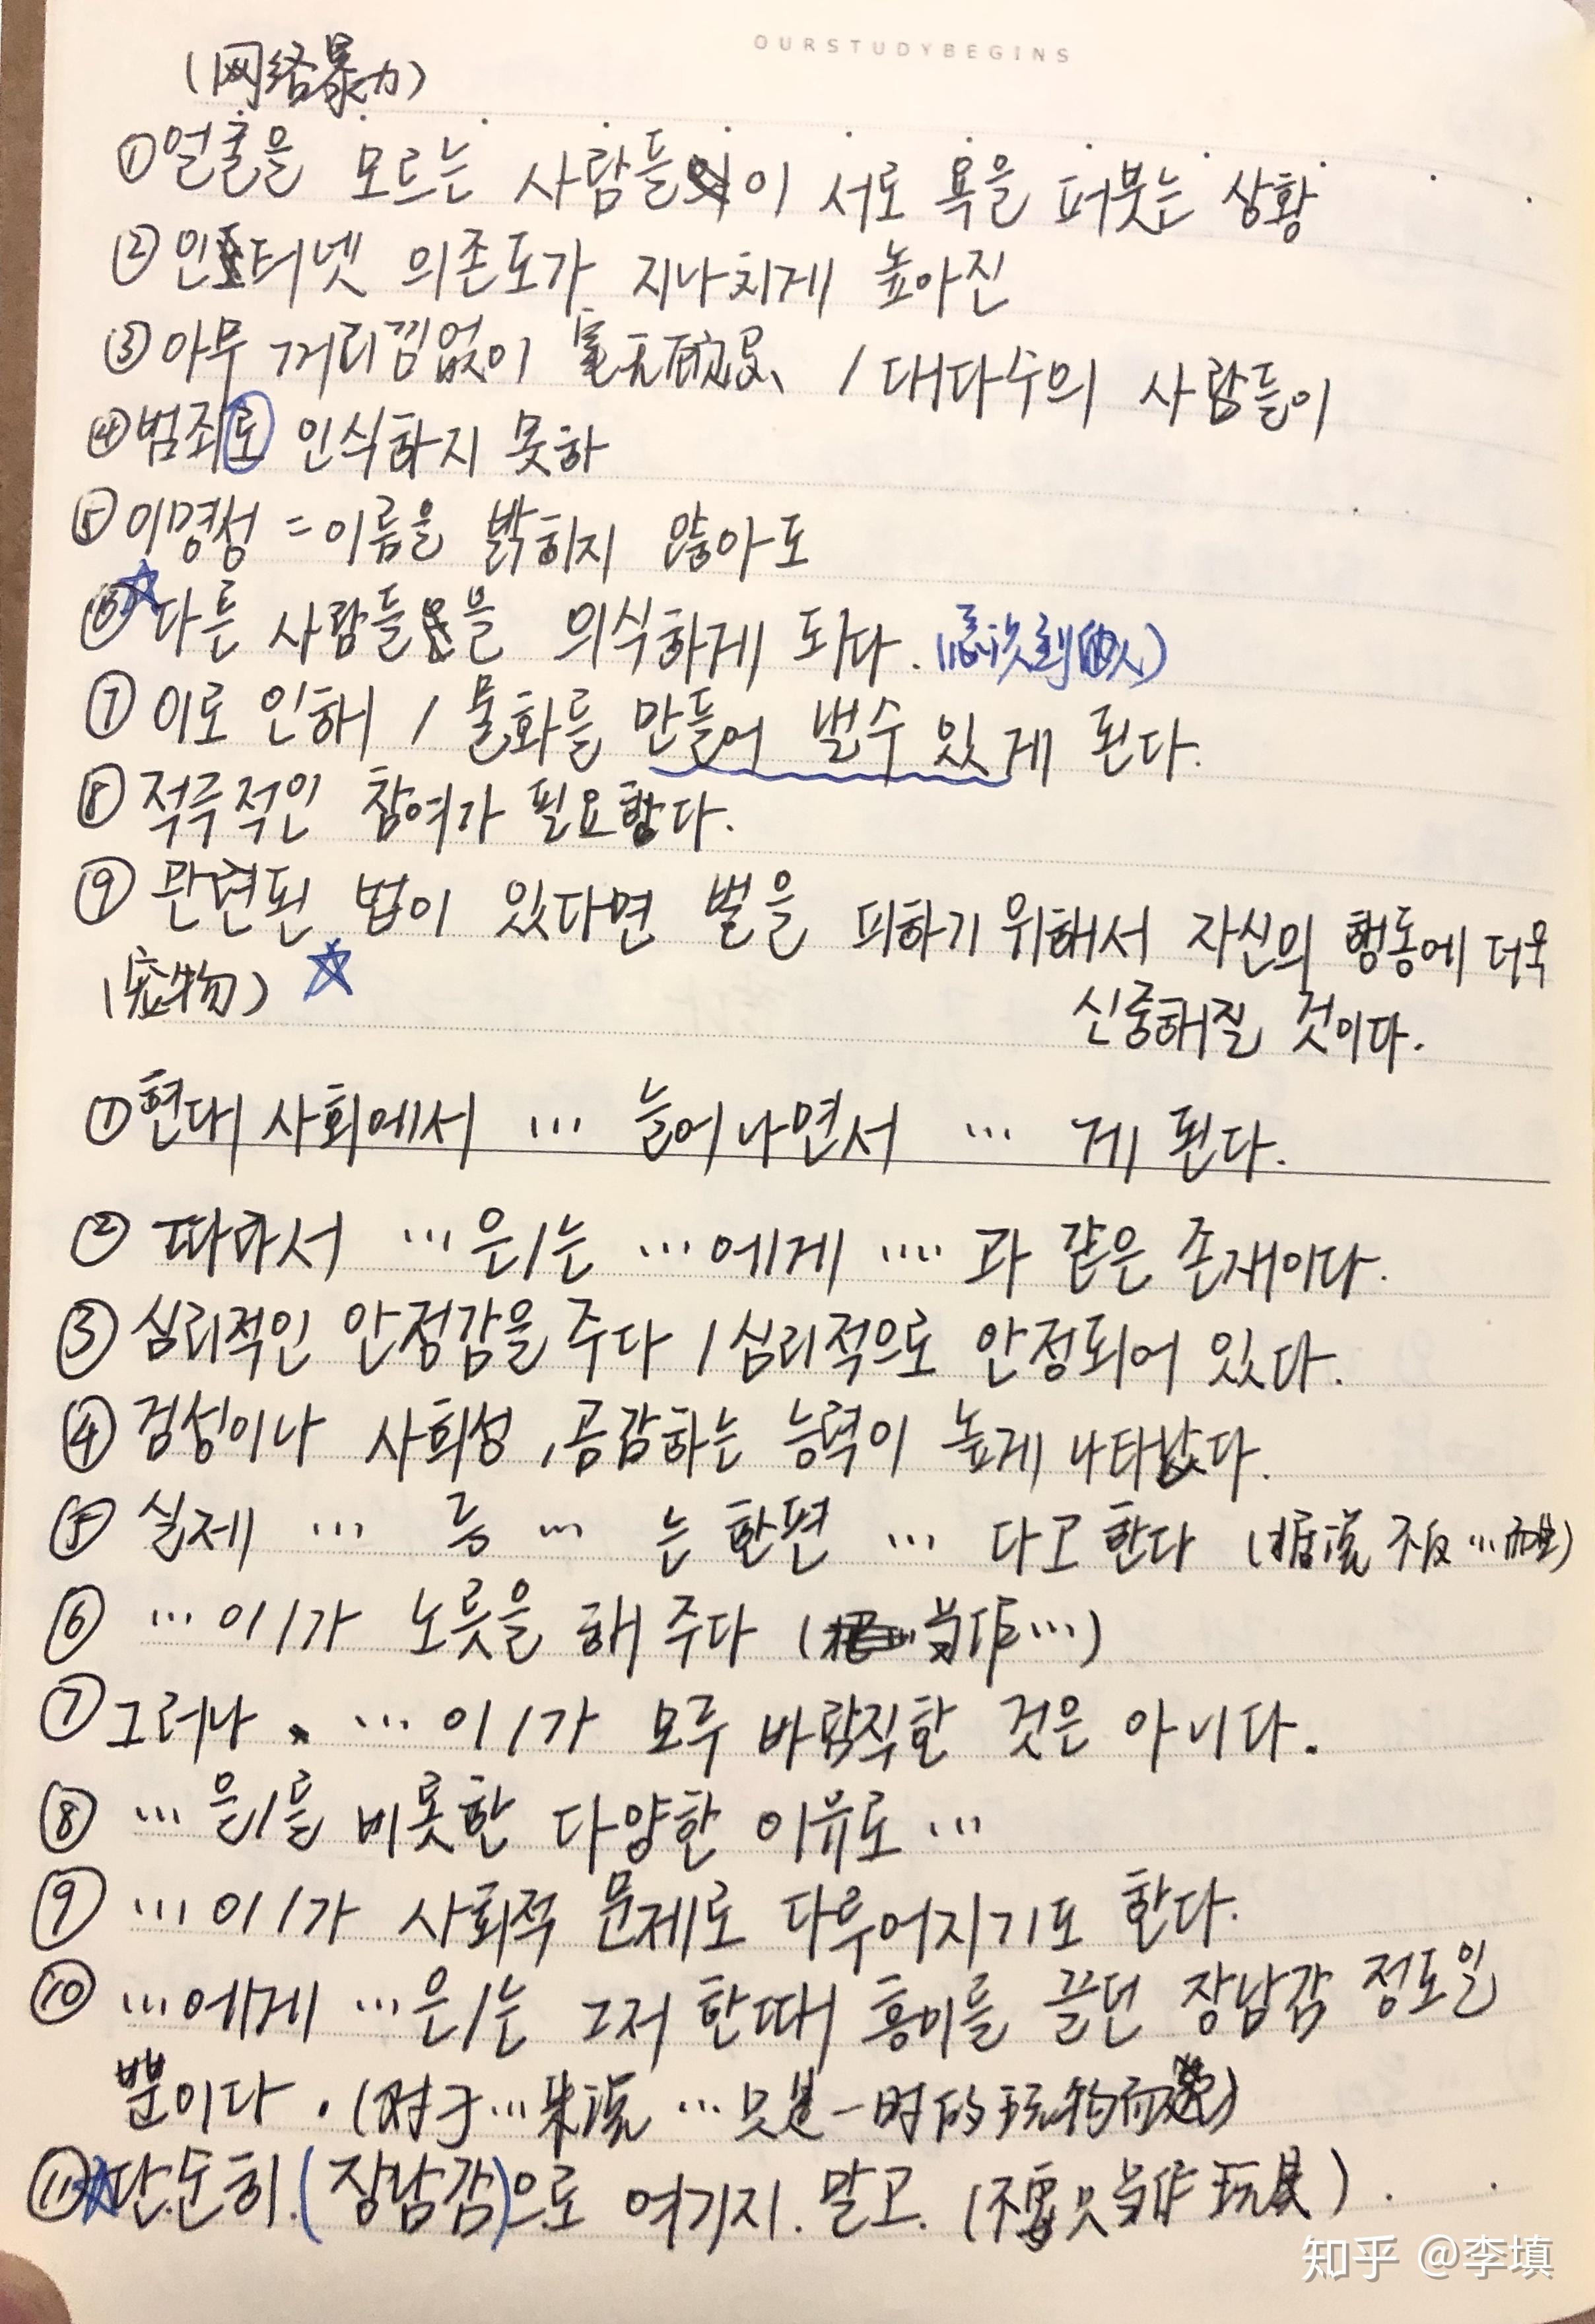 OURSTUDYBEGINS
(网络暴力)
①얼출을 모르는 사람들이 서로 욕을 퍼붓는 상황
②인터넷 의존도가 지나치게 높아진
③아무 꺼리낌없이 毫无顾忌、/대다수의 사람들이
④범죄로 인식하지 못하
⑤이명성 = 이름을 밝히지 않아도
⑥☆다른 사람들을 의식하게 되다. (意识到他人)
⑦이로 인해 / 물화를 만들어 벌수 있게 된다.
⑧적극적인 참여가 필요합다.
⑨관련된 법이 있다면 벌을 피하기 위해서 자신의 행동에 더욱
신중해질 것이다.
(宠物) ☆
①현대 사회에서 … 늘어나면서 … 게 된다.
②따라서 …은/는 …에게 …. 과 같은 존재이다.
③심리적인 안정감을 주다 / 심리적으로 안정되어 있다.
④검성이나 사회성, 공감하는 능력이 높게 나타났다.
⑤실제 … 등 … 는 한편 … 다고 한다 (据说 不仅…而且)
⑥…이/가 노릇을 해 주다 (当作…)
⑦그러나, …이/가 모두 바람직한 것은 아니다.
⑧…은/를 비롯한 다양한 이유로…
⑨…이/가 사회적 문제로 다루어지기도 한다.
⑩…에게 …은/는 그저 한때 흥미를 끌던 장난감 정도일
뿐이다. (对于…来说 …只是一时的玩物而)
⑪☆단순히 (장남감)으로 여기지 말고. (不要只当作玩具).
知乎 @李填